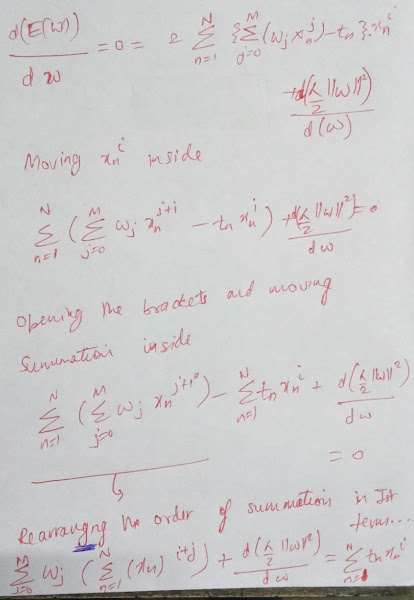 d(E(w))/dw = 0 = 2 ∑_{n=1}^{N} {∑_{j=0}^{M} (w_j x_n^j) - t_n}. x_n^i
+ d(λ/2 ||w||²)/d(w)
Moving x_n^i inside
∑_{n=1}^{N} (∑_{j=0}^{M} w_j x_n^{j+i} - t_n x_n^i) + d(λ/2 ||w||²)/dw = 0
Opening the brackets and moving
summation inside
∑_{n=1}^{N} (∑_{j=0}^{M} w_j x_n^{j+i}) - ∑_{n=1}^{N} t_n x_n^i + d(λ/2 ||w||²)/dw
= 0
Rearranging the order of summation in Ist
term...
∑_{j=0}^{M} w_j (∑_{n=1}^{N} (x_n)^{i+j}) + d(λ/2 ||w||²)/dw = ∑_{n=1}^{N} t_n x_n^i